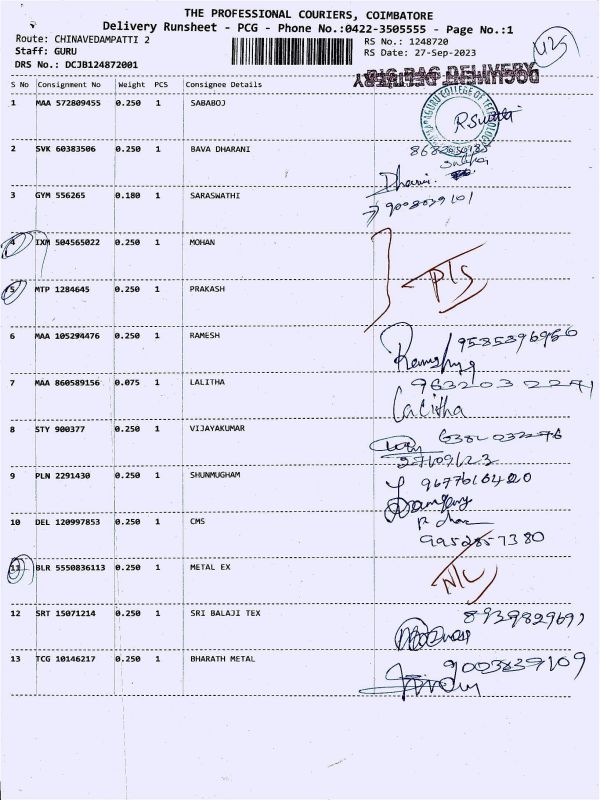 THE PROFESSIONAL COURIERS, COIMBATORE
Delivery Runsheet - PCG - Phone No.:0422-3505555 - Page No.:1
Route: CHINAVEDAMPATTI 2
RS No.: 1248720
Staff: GURU
RS Date: 27-Sep-2023
DRS No.: DCJB124872001
S No Consignment No Weight PCS Consignee Details
1 MAA 572809455 0.250 1 SABABOJ
2 SVK 60383506 0.250 1 BAVA DHARANI
3 GYM 556265 0.180 1 SARASWATHI
9003039101
4 IXM 504565022 0.250 1 MOHAN
5 MTP 1284645 0.250 1 PRAKASH
6 MAA 105294476 0.250 1 RAMESH
9585396956
7 MAA 860589156 0.075 1 LALITHA
Lalitha
8 STY 900377 0.250 1 VIJAYAKUMAR
27/09/23
9 PLN 2291430 0.250 1 SHUNMUGHAM
10 DEL 120997853 0.250 1 CMS
9952857380
11 BLR 5550836113 0.250 1 METAL EX
12 SRT 15071214 0.250 1 SRI BALAJI TEX
13 TCG 10146217 0.250 1 BHARATH METAL
9003839109